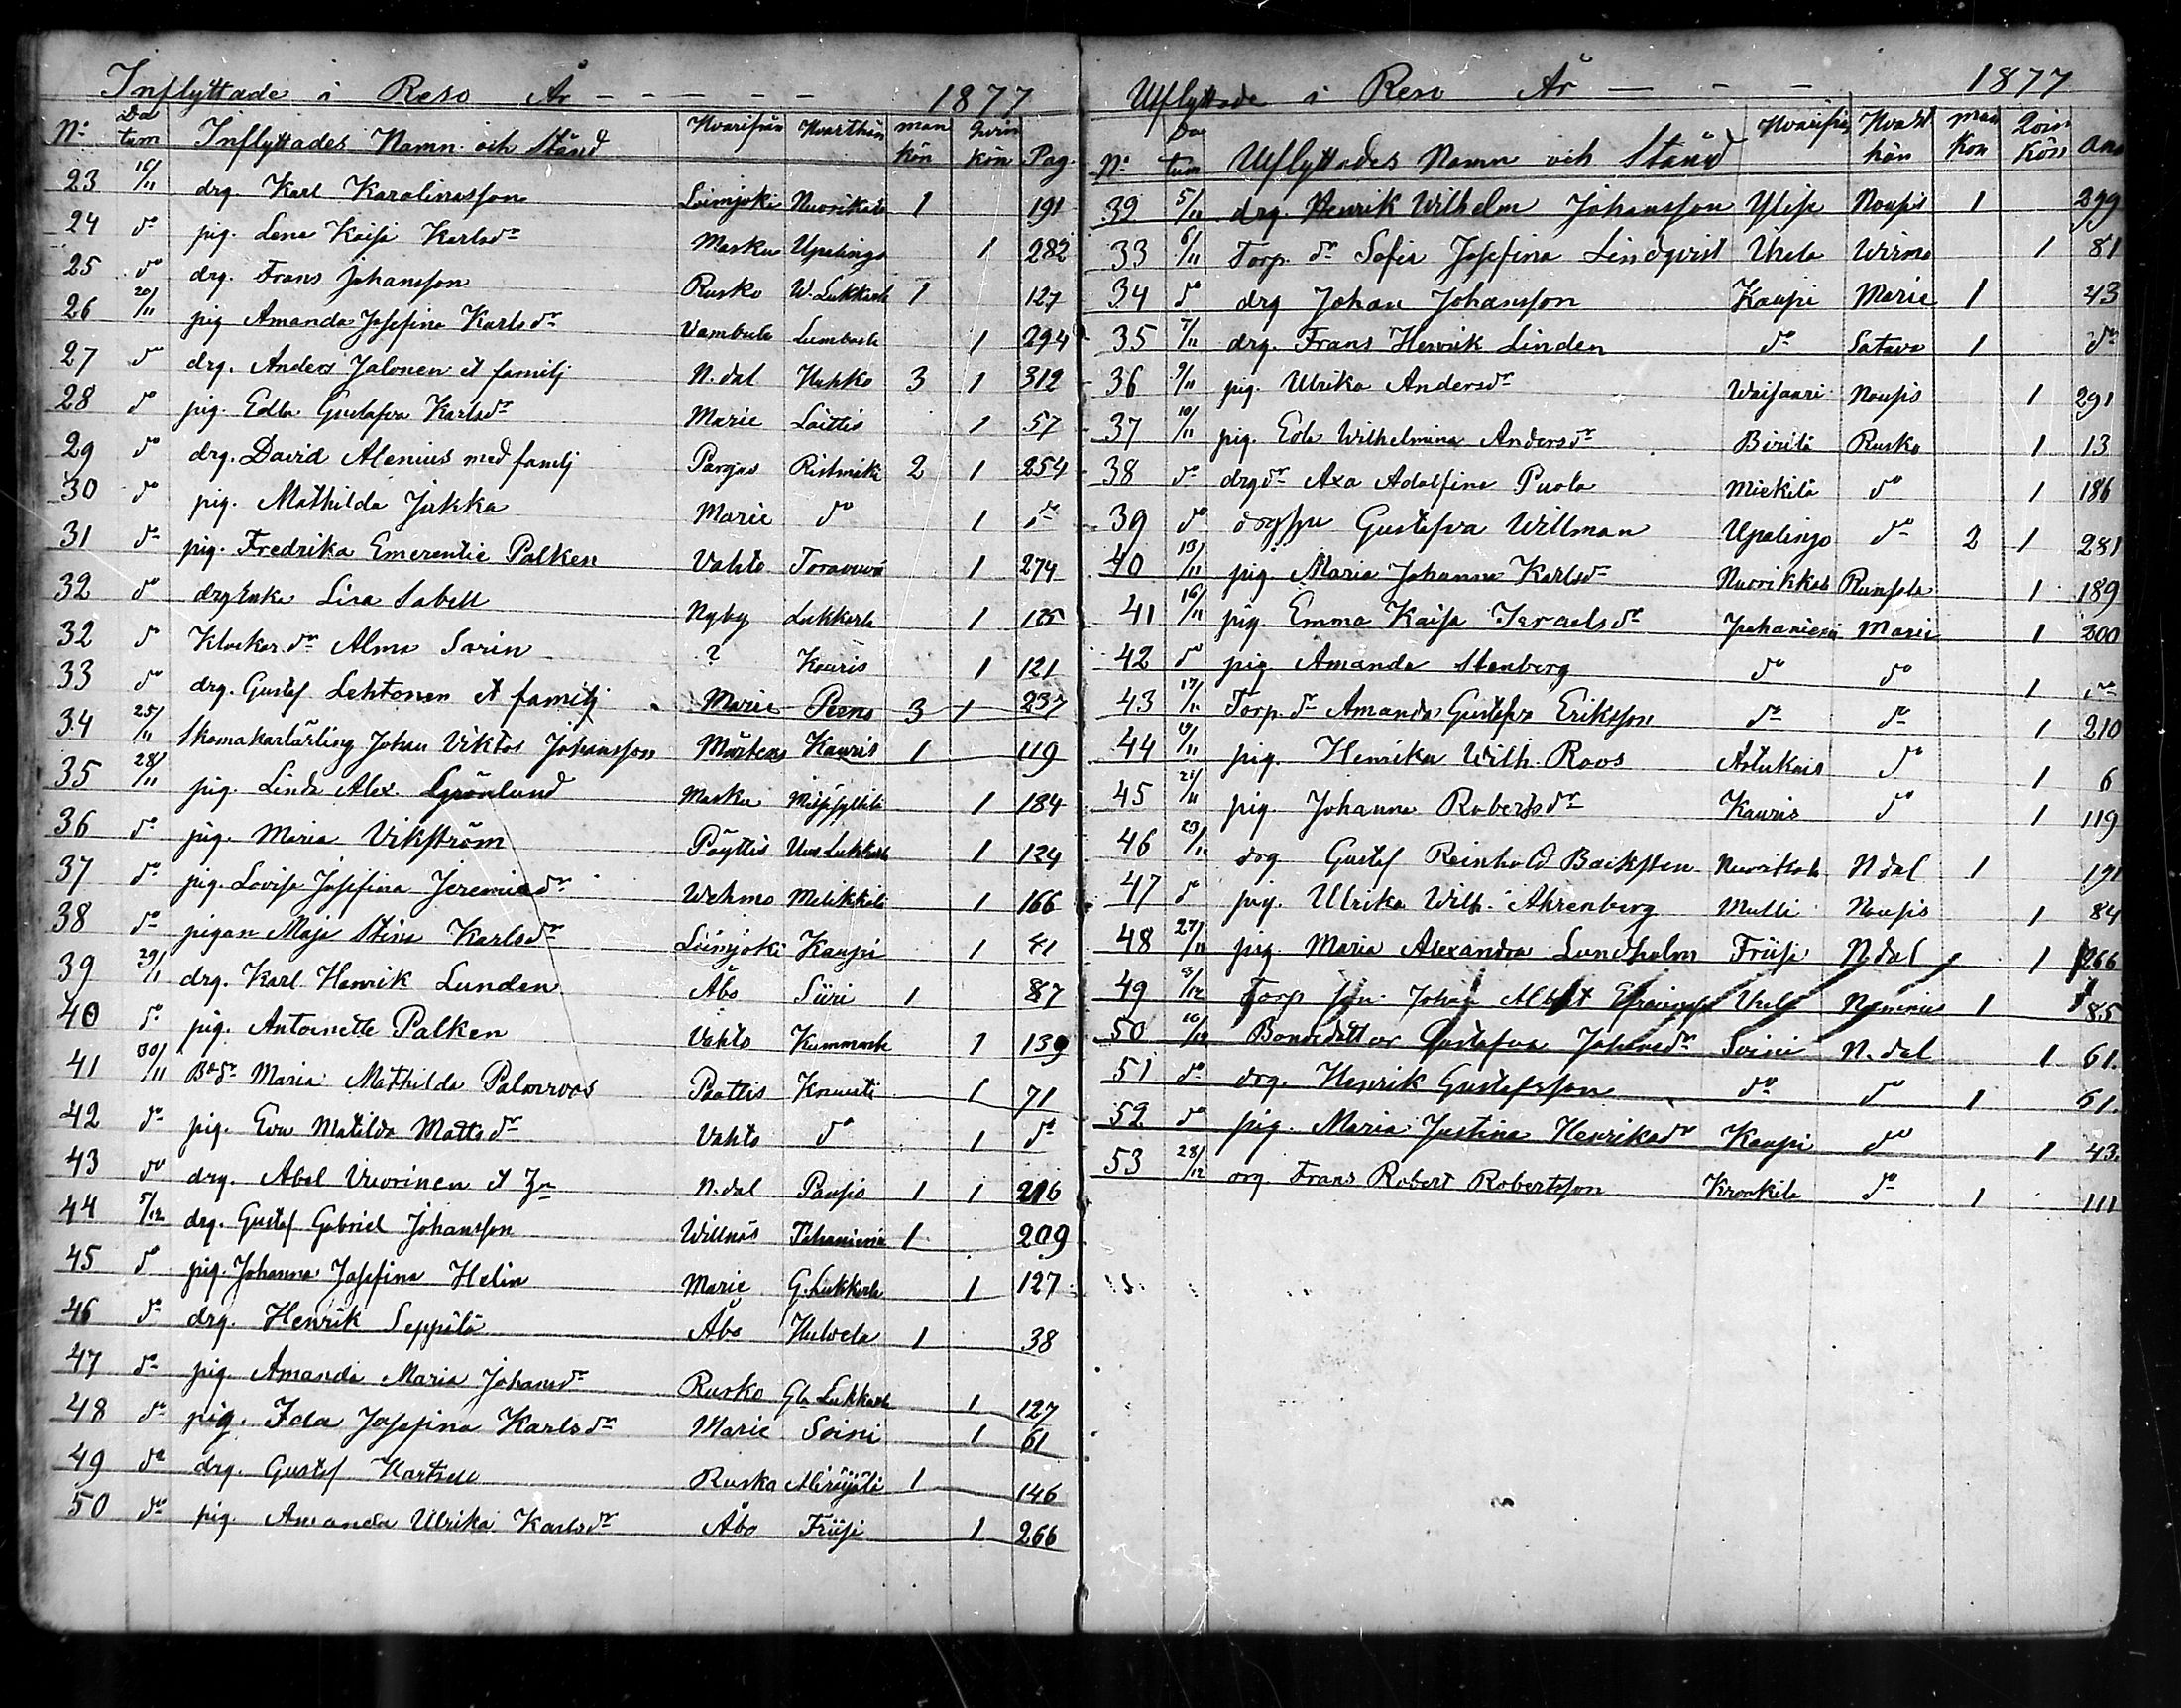 Inflyttade i Reso År - - - - - 1877
No Datum Inflyttades Namn och Stånd Hvarifrån Hvarthän mankön qvinkön Pag.
23 16/11 drg. Karl Karolinasson Loimjoki 1 191
24 do pig. Lena Kaisa Karlsdr Masku Upalingo 1 282
25 do drg. Frans Johansson Rusko W. Lukkarla 1 127
26 20/11 pig Amanda Josefina Karlsdr Vambula 1 294
27 do drg. Anders Jalonen et familj N.dal Huhko 3 1 312
28 do pig. Edla Gustafva Karlsdr Marie Laittis 1 57
29 do drg. David Alenius med familj Pargas Ristmäki 2 1 254
30 do pig. Mathilda Jukka Marie do 1 do
31 do pig. Fredrika Emerentie Palken Vahto 1 274
32 do drgEnka Lisa Sabell Nyby Lukkarla 1 125
32 do Klockar.dr Alma ? Kauris 1 121
33 do drg. Gustef Lehtonen et familj Marie Peens 3 1 237
34 25/11 Skomakarlärling Johan Viktor Johansson Mårtens Kauris 1 119
35 28/11 pig. Linda Alex. Grönlund Masku 1 184
36 do pig. Maria Vikström Pöyttis Uus Lukkarla 1 124
37 do pig. Lovisa Josefina Jeremiasdr Wehmo 1 166
38 do pigan Maja Stina Karlsdr Loimjoki Kaupi 1 41
39 29/11 drg. Karl Henrik Lunden Åbo Siiri 1 87
40 do pig. Antoinette Palken Vahto 1 139
41 30/11 Bo.dr Maria Mathilda Palmroos Paattis 1 71
42 do pig. Eva Matilda Mattsdr Vahto do 1 do
43 do drg. Abel Vuorinen et N.dal 1 1 216
44 5/12 drg. Gustef Gabriel Johansson Willnäs 1 209
45 do pig. Johanna Josefina Helin Marie G. Lukkarla 1 127
46 do drg. Henrik Seppälä Åbo Hulvela 1 38
47 do pig. Amanda Maria Johansdr Rusko Gla Lukkarla 1 127
48 do pig. Ida Josefina Karlsdr Marie Soini 1 61
49 do drg. Gustef Hartzell Rusko 1 146
50 do pig. Amanda Ulrika Karlsdr Åbo Friisi 1 266
Utflyttade i Reso År - - - 1877
No Datum Utflyttades Namn och Stånd Hvarifrån Hvarthän mankön Qvinkön
32 5/11 drg. Henrik Wilhelm Johansson Nousis 1 299
33 6/11 Torp.dr Sofia Josefina Lindqvist Uhela Wirmo 1 81
34 do drg Johan Johansson Kaupi Marie 1 43
35 7/11 drg. Frans Henrik Linden do Satava 1 do
36 9/11 pig. Ulrika Andersdr Nousis 1 291
37 10/11 pig. Eva Wilhelmina Andersdr Biritä Rusko 1 13
38 do drgdr Axa Adolfina Puola Miekilä do 1 186
39 do Gustafva Willman Upalingo do 2 1 281
40 13/11 pig. Maria Johanna Karlsdr Nuorikkala 1 189
41 16/11 pig. Emma Kaisa Israelsdr Marie 1 200
42 do pig. Amanda Stenberg do do 1 do
43 17/11 Torp.dr Amanda Gustafva Eriksson do do 1 210
44 19/11 pig. Henrika Wilh. Roos Artukais do 1 6
45 21/11 pig. Johanna Robertsdr Kauris do 1 119
46 23/11 drg Gustef Reinhold N dal 1 191
47 do pig. Ulrika Wilh. Ahrenberg Mulli Nousis 1 84
48 27/11 pig. Maria Alexandra Lundholm Friisi N.dal 1 266
49 3/12 Torp son Johan Albert Uhela 1 85
50 10/12 Bondedotter Gustafva Johansdr Soini N. dal 1 61.
51 do drg. Henrik Gustafsson do do 1 61.
52 do pig. Maria Justina Henriksdr Kaupi do 1 43.
53 28/12 drg Frans Robert Robertsson Krookila do 1 111